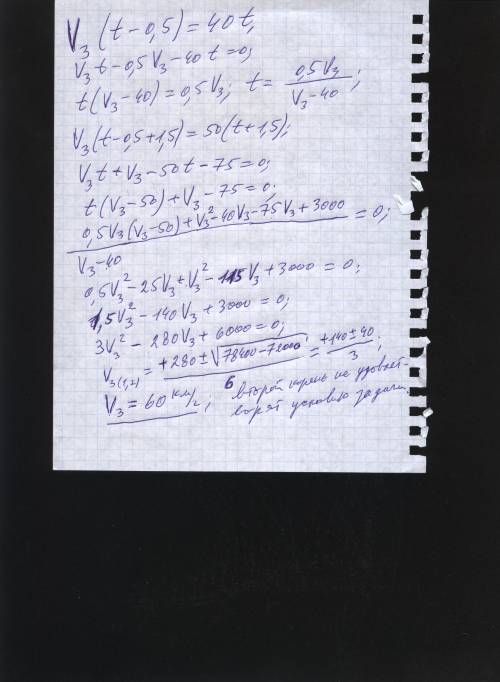 V₃(t-0,5)=40t,
V₃t-0,5V₃-40t=0;
t(V₃-40)=0,5V₃; t=0,5V₃/(V₃-40);
V₃(t-0,5+1,5)=50(t+1,5);
V₃t+V₃-50t-75=0;
t(V₃-50)+V₃-75=0;
(0,5V₃(V₃-50)+V₃²-40V₃-75V₃+3000)/(V₃-40)=0;
0,5V₃²-25V₃+V₃²-115V₃+3000=0;
1,5V₃²-140V₃+3000=0;
3V₃²-280V₃+6000=0;
V₃(1,2)=(+280±√(78400-72000))/6=(+140±40)/3;
V₃=60 км/г; второй корень не удовлет-
ворят условию задачи.